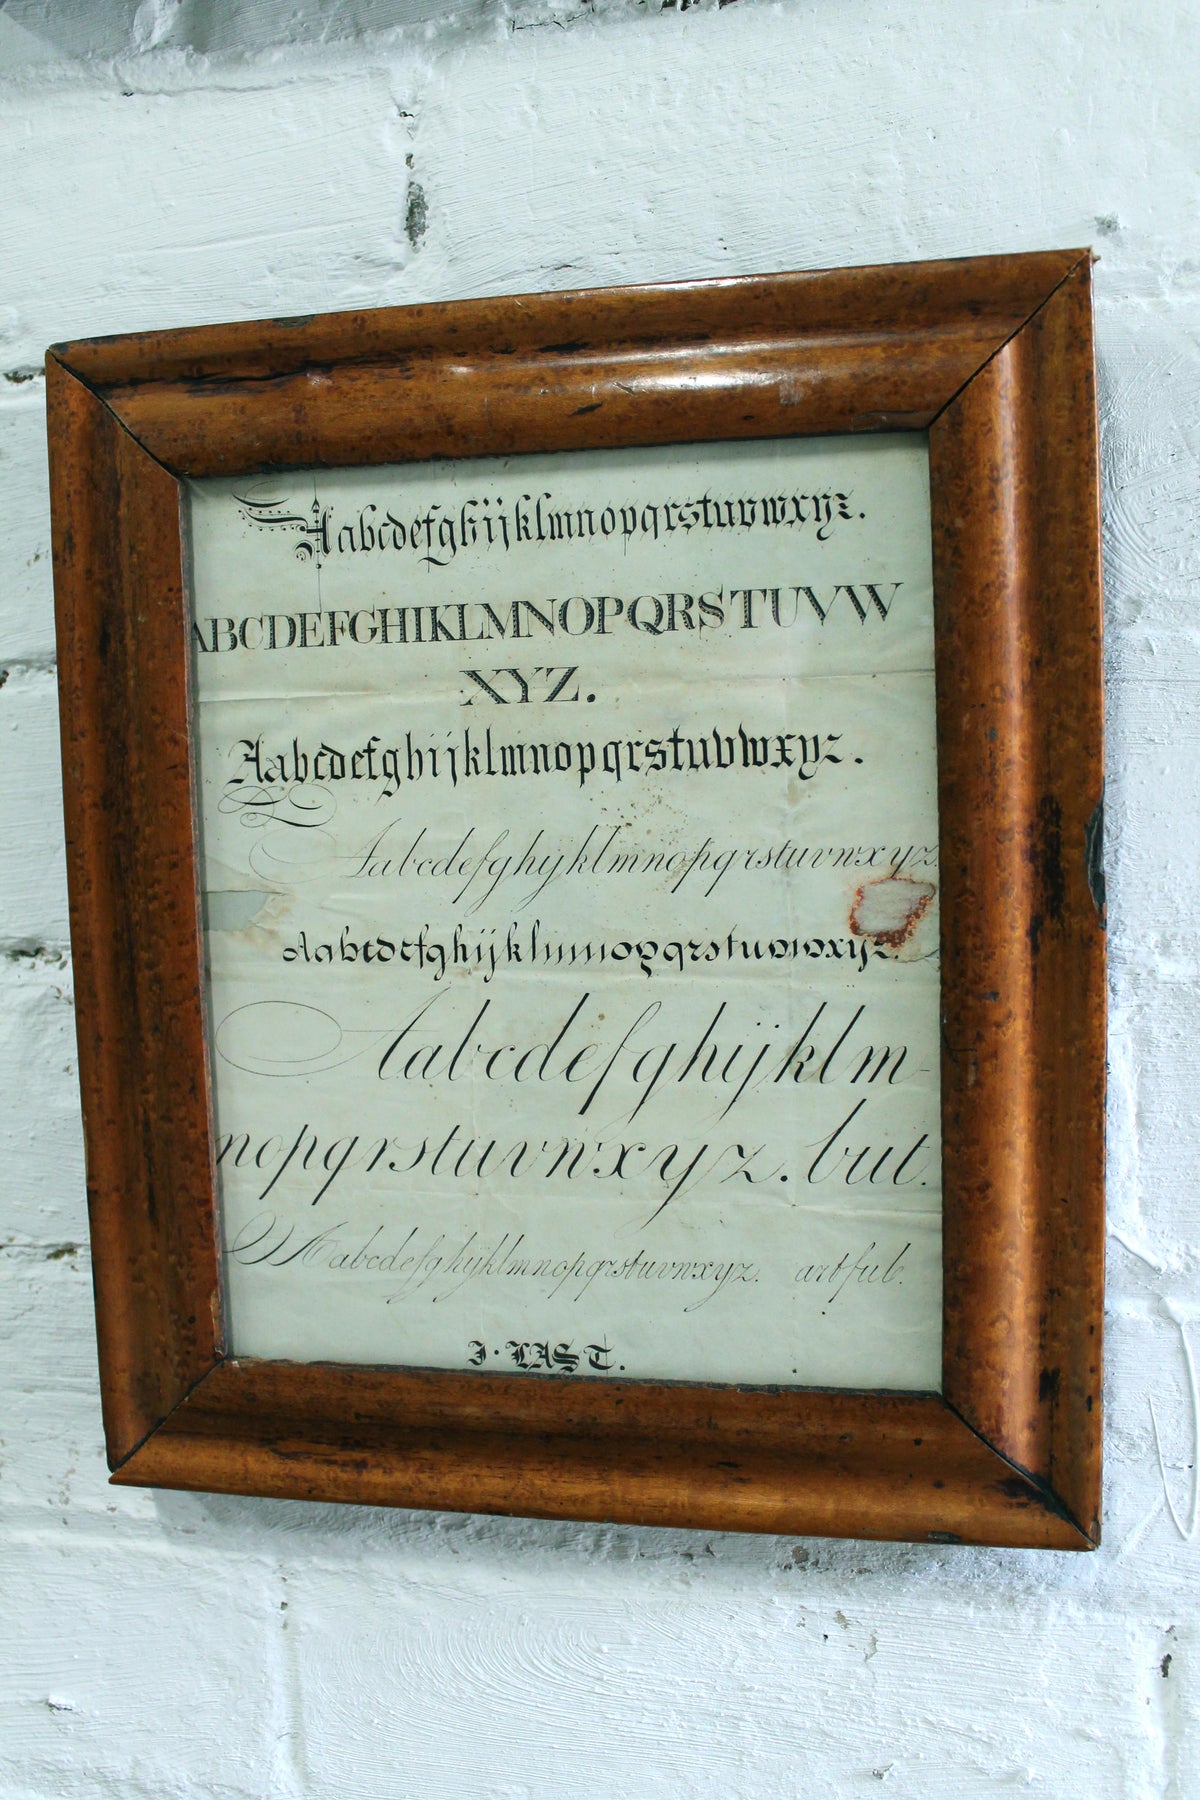 Aabcdefghijklmnopqrstuvwxyz.
ABCDEFGHIKLMNOPQRSTUVW
XYZ.
Aabcdefghijklmnopqrstuvwxyz.
Aabcdefghijklmnopqrstuvwxyz
Aabcdefghijklmnopqrstuvwxyz.
Aabcdefghijklm
nopqrstuvwxyz. but.
Aabcdefghijklmnopqrstuvwxyz. artful.
I. LAST.